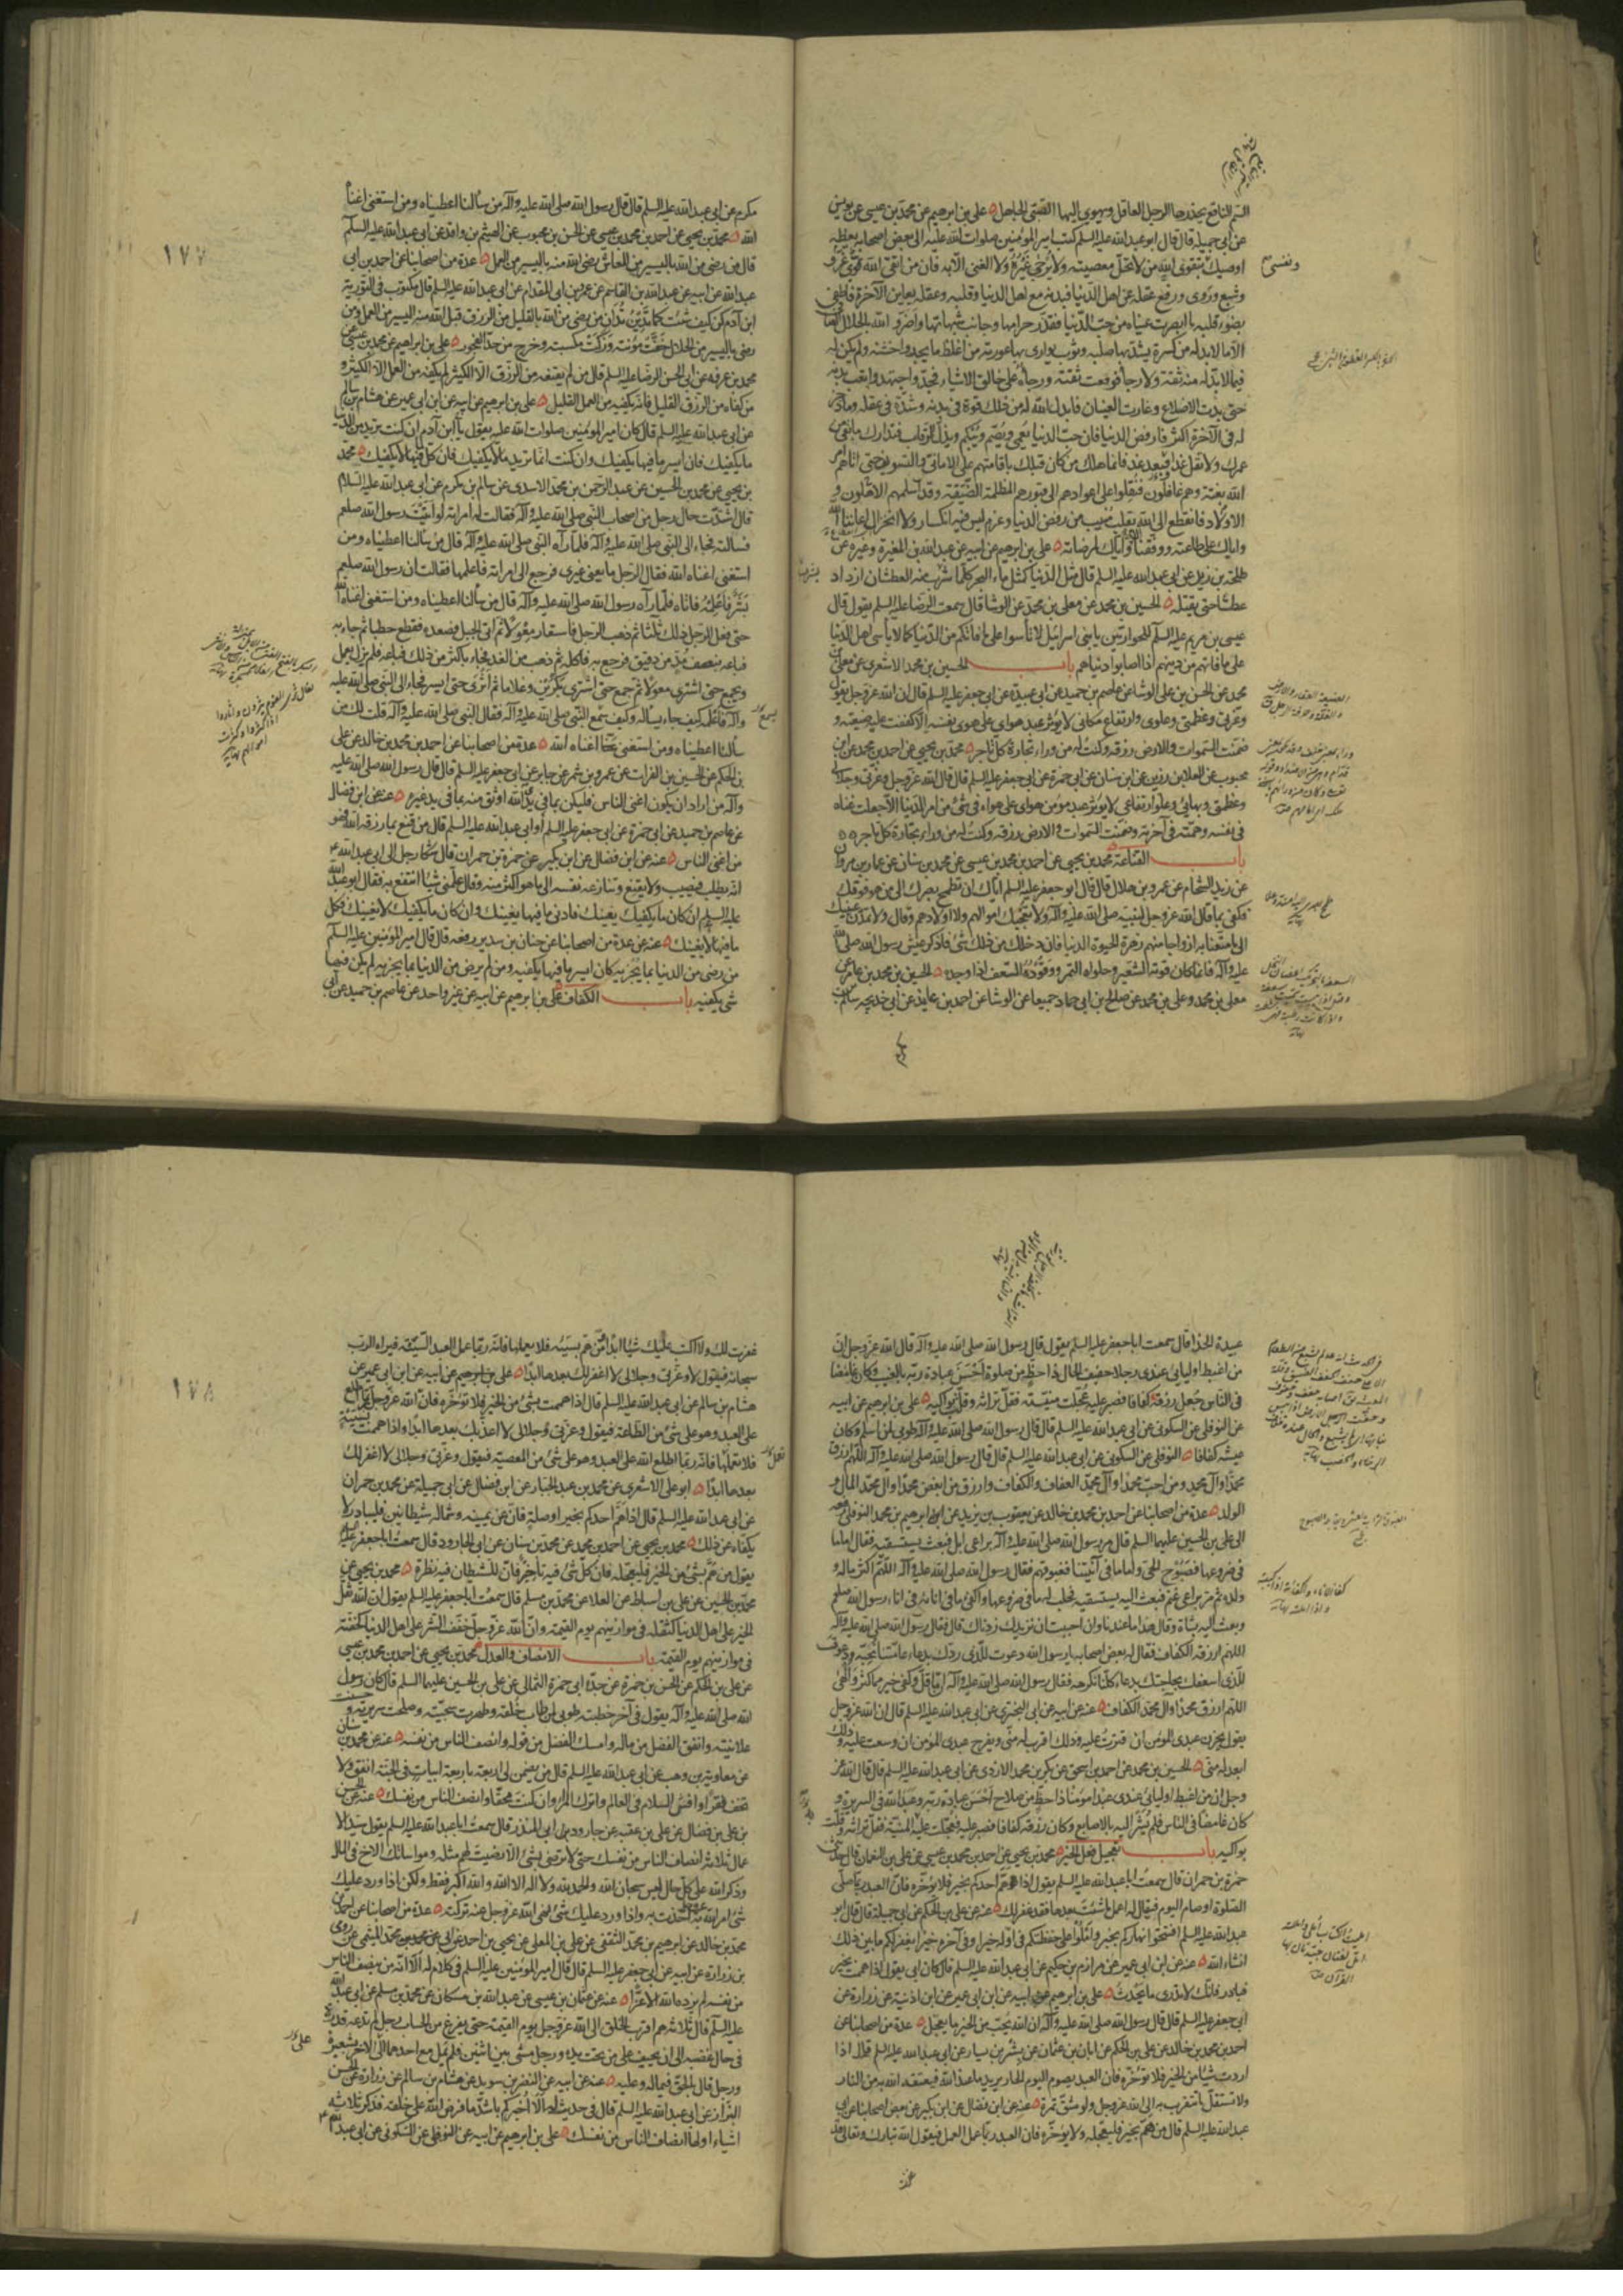 السم الناقع يحذرها الرجل العاقل ويهوي اليها الصبى الجاهل علي بن ابرهيم عن محمد بن عيسى عن يونس
عن ابي جميلة قال قال ابو عبد الله عليه السلم كتب امير المؤمنين صلوات الله عليه الى بعض اصحابه يعظه
اوصيك بتقوى الله من لا تحل معصيته ولا يرجى غيره ولا الغنى الا به فان من اتقى الله
وشبع وروى ورفع عقله عن اهل الدنيا فبدنه مع اهل الدنيا وقلبه وعقله معاين الآخرة فاطفى
بضوء قلبه ما ابصرت عيناه من حب الدنيا فقذر حرامها وجانب شبهاتها واضر والله بالحلال
الا ما لا بد له من كسرة يشد بها صلبه وثوب يوارى بها عورته من اغلظ ما يجد واخشنه ولم يكن له
فيما لا بد له منه ثقة ولا رجاء فوقعت ثقته ورجاؤه على خالق الاشياء فجد واجتهد واتعب بدنه
حتى بدت الاضلاع وغارت العينان فابدل الله له من ذلك قوة في بدنه وشدة في عقله وما ذخر
له في الآخرة اكثر فارفض الدنيا فان حب الدنيا يعمى ويصم ويبكم ويذل الرقاب فتدارك ما بقى من
عمرك ولا تقل غدا وبعد غد فانما هلك من كان قبلك باقامتهم على الاماني والتسويف حتى اتاهم امر
الله بغتة وهم غافلون فنقلوا على اعوادهم الى قبورهم المظلمة الضيقة وقد اسلمهم الاهلون و
الاولاد فانقطع الى الله بقلب منيب من رفض الدنيا وعزم ليس فيه انكسار ولا انخزال اعاننا الله
واياك على طاعته ووفقنا واياك لمرضاته علي بن ابرهيم عن ابيه عن عبد الله بن المغيرة وغيره عن
طلحة بن زيد عن ابي عبد الله عليه السلم قال مثل الدنيا كمثل ماء البحر كلما شرب منه العطشان ازداد
عطشا حتى يقتله الحسين بن محمد عن معلى بن محمد عن الوشا قال سمعت الرضا عليه السلم يقول قال
عيسى بن مريم عليه السلم للحواريين يا بني اسرائيل لا تأسوا على ما فاتكم من الدنيا كما لا يأسى اهل الدنيا
على ما فاتهم من دينهم اذا اصابوا دنياهم باب الحسين بن محمد الاشعري عن معلى بن
محمد عن الحسن بن علي الوشا عن عاصم بن حميد عن ابي عبيدة عن ابي جعفر عليه السلم قال ان الله عز وجل يقول
وعزتى وعظمتى وعلوى وارتفاع مكانى لا يؤثر عبد هواى على هوى نفسه الا كففت عليه ضيعته و
ضمنت السموات والارض رزقه وكنت له من وراء تجارة كل تاجر محمد بن يحيى عن احمد بن محمد عن ابن
محبوب عن العلا بن رزين عن ابن سنان عن ابي حمزة عن ابي جعفر عليه السلم قال قال الله عز وجل وعزتى وجلالى
وعظمتى وبهائى وعلو ارتفاعى لا يؤثر عبد مؤمن هواى على هواه في شئ من امر الدنيا الا جعلت غناه
في نفسه وهمته في آخرته وضمنت السموات والارض رزقه وكنت له من وراء تجارة كل تاجر
باب القناعة محمد بن يحيى عن احمد بن محمد بن عيسى عن محمد بن سنان عن عمار بن مروان
عن زيد الشحام عن عمرو بن هلال قال قال ابو جعفر عليه السلم اياك ان تطمح بصرك الى من هو فوقك
فكفى بما قال الله عز وجل لنبيه صلى الله عليه وآله ولا تعجبك اموالهم ولا اولادهم وقال ولا تمدن عينيك
الى ما متعنا به ازواجا منهم زهرة الحيوة الدنيا فان دخلك من ذلك شئ فاذكر عيش رسول الله صلى الله
عليه وآله فانما كان قوته الشعير وحلواه التمر ووقوده السعف اذا وجده الحسين بن محمد بن عامر عن
معلى بن محمد وعلي بن محمد عن صالح بن ابي حماد جميعا عن الوشا عن احمد بن عايذ عن ابي خديجة سالم بن
مكرم عن ابي عبد الله عليه السلم قال قال رسول الله صلى الله عليه وآله من سألنا اعطيناه ومن استغنى اغناه
الله محمد بن يحيى عن احمد بن محمد بن عيسى عن الحسن بن محبوب عن الهيثم بن واقد عن ابي عبد الله عليه السلم
قال من رضى من الله باليسير من المعاش رضى الله منه باليسير من العمل عدة من اصحابنا عن احمد بن ابي
عبد الله عن ابيه عن عبد الله بن القاسم عن عمرو بن ابي المقدام عن ابي عبد الله عليه السلم قال مكتوب في التورية
ابن آدم كن كيف شئت كما تدين تدان من رضى من الله بالقليل من الرزق قبل الله منه اليسير من العمل ومن
رضى باليسير من الحلال خفت مؤنته وزكت مكسبته وخرج من حد الفجور علي بن ابراهيم عن محمد بن عيسى عن
محمد بن عرفه عن ابي الحسن الرضا عليه السلم قال من لم يقنعه من الرزق الا الكثير لم يكفه من العمل الا الكثير و
من كفاه من الرزق القليل فانه يكفيه من العمل القليل علي بن ابرهيم عن ابيه عن ابن ابي عمير عن هشام بن سالم
عن ابي عبد الله عليه السلم قال كان امير المؤمنين صلوات الله عليه يقول يا ابن آدم ان كنت تريد من الدنيا
ما يكفيك فان ايسر ما فيها يكفيك وان كنت انما تريد ما لا يكفيك فان كل ما فيها لا يكفيك محمد
بن يحيى عن محمد بن الحسين عن عبد الرحمن بن محمد الاسدي عن سالم بن مكرم عن ابي عبد الله عليه السلام
قال اشتدت حال رجل من اصحاب النبي صلى الله عليه وآله فقالت له امراته لو اتيت رسول الله صلعم
فسألته فجاء الى النبي صلى الله عليه وآله فلما رآه النبي صلى الله عليه وآله قال من سألنا اعطيناه ومن
استغنى اغناه الله فقال الرجل ما يعنى غيرى فرجع الى امراته فاعلمها فقالت ان رسول الله صلعم
بشر فاعلمه فاتاه فلما رآه رسول الله صلى الله عليه وآله قال من سألنا اعطيناه ومن استغنى اغناه الله
حتى فعل الرجل ذلك ثلثا ثم ذهب الرجل فاستعار معولا ثم اتى الجبل فصعده فقطع حطبا ثم جاء به
فباعه بنصف مد من دقيق فرجع به فاكله ثم ذهب من الغد فجاء باكثر من ذلك فباعه فلم يزل يعمل
ويجمع حتى اشترى معولا ثم جمع حتى اشترى بكرين وغلاما ثم اثرى حتى ايسر فجاء الى النبي صلى الله عليه
وآله فاعلمه كيف جاء يسأله وكيف سمع النبي صلى الله عليه وآله فقال النبي صلى الله عليه وآله قلت لك من
سألنا اعطيناه ومن استغنى اغناه الله عدة من اصحابنا عن احمد بن محمد بن خالد عن علي
بن الحكم عن الحسين بن الفرات عن عمرو بن شمر عن جابر عن ابي جعفر عليه السلم قال قال رسول الله صلى الله عليه
وآله من اراد ان يكون اغنى الناس فليكن بما في يد الله اوثق منه بما في يد غيره عنه عن ابن فضال
عن عاصم بن حميد عن ابي حمزة عن ابي جعفر عليه السلم او ابي عبد الله عليه السلم قال من قنع بما رزقه الله فهو
من اغنى الناس عنه عن ابن فضال عن ابن بكير عن حمزة بن حمران قال شكا رجل الى ابي عبد الله
انه يطلب فيصيب ولا يقنع وتنازعه نفسه الى ما هو اكثر منه وقال علمنى شيئا انتفع به فقال ابو عبد الله
عليه السلم ان كان ما يكفيك يغنيك فادنى ما فيها يغنيك وان كان ما يكفيك لا يغنيك فكل
ما فيها لا يغنيك عنه عن عدة من اصحابنا عن حنان بن سدير رفعه قال قال امير المؤمنين عليه السلم
من رضى من الدنيا بما يجزيه كان ايسر ما فيها يكفيه ومن لم يرض من الدنيا بما يجزيه لم يكن فيها
شئ يكفيه باب الكفاف علي بن ابرهيم عن ابيه عن غير واحد عن عاصم بن حميد عن ابي
١٧٧
عبيدة الحذا قال سمعت ابا جعفر عليه السلم يقول قال رسول الله صلى الله عليه وآله قال الله عز وجل ان
من اغبط اوليائى عندى رجلا خفيف الحال ذا حظ من صلوة احسن عبادة ربه بالغيب وكان غامضا
في الناس جعل رزقه كفافا فصبر عليه عجلت منيته فقل تراثه وقلت بواكيه علي بن ابرهيم عن ابيه
عن النوفلي عن السكوني عن ابي عبد الله عليه السلم قال قال رسول الله صلى الله عليه وآله طوبى لمن اسلم وكان
عيشه كفافا النوفلي عن السكوني عن ابي عبد الله عليه السلم قال قال رسول الله صلى الله عليه وآله اللهم ارزق
محمدا وآل محمد ومن احب محمدا وآل محمد العفاف والكفاف وارزق من ابغض محمدا وآل محمد المال و
الولد عدة من اصحابنا عن احمد بن محمد بن خالد عن يعقوب بن يزيد عن ابراهيم بن محمد النوفلي رفعه
الى علي بن الحسين عليهما السلم قال مر رسول الله صلى الله عليه وآله براعى ابل فبعث يستسقيه فقال اما ما
في ضروعها فصبوح الحى واما ما في آنيتنا فغبوقهم فقال رسول الله صلى الله عليه وآله اللهم اكثر ماله و
ولده ثم مر براعى غنم فبعث اليه يستسقيه فحلب له ما في ضروعها واكفئ ما في انائه في اناء رسول الله صلعم
وبعث اليه بشاة وقال هذا ما عندنا وان احببت ان نزيدك زدناك قال فقال رسول الله صلى الله عليه وآله
اللهم ارزقه الكفاف فقال له بعض اصحابه يا رسول الله دعوت للذى ردك بدعاء عامتنا نحبه ودعوت
للذى اسعفك بحاجتك بدعاء كلنا نكرهه فقال رسول الله صلى الله عليه وآله ان ما قل وكفى خير مما كثر والهى
اللهم ارزق محمدا وآل محمد الكفاف عنه عن ابيه عن ابي البخترى عن ابي عبد الله عليه السلم قال ان الله عز وجل
يقول يحزن عبدى المؤمن ان قترت عليه وذلك اقرب له منى ويفرح عبدى المؤمن ان وسعت عليه وذلك
ابعد له منى الحسين بن محمد عن احمد بن اسحق عن بكر بن محمد الازدى عن ابي عبد الله عليه السلم قال قال الله عز
وجل ان من اغبط اوليائى عندى عبدا مؤمنا ذا حظ من صلاح احسن عبادة ربه وعبد الله في السريرة و
كان غامضا في الناس فلم يشر اليه بالاصابع وكان رزقه كفافا فصبر عليه فعجلت عليه المنية فقل تراثه وقلت
بواكيه باب تعجيل فعل الخير محمد بن يحيى عن احمد بن محمد بن عيسى عن علي بن النعمان قال حدثنى
حمزة بن حمران قال سمعت ابا عبد الله عليه السلم يقول اذا هم احدكم بخير فلا يؤخره فان العبد ربما صلى
الصلوة او صام اليوم فيقال له اعمل ما شئت بعدها فقد غفر لك عنه عن علي بن الحكم عن ابي جميلة قال قال ابو
عبد الله عليه السلم افتتحوا نهاركم بخير واملوا على حفظتكم في اوله خيرا وفي آخره خيرا يغفر لكم ما بين ذلك
انشاء الله عنه عن ابن ابي عمير عن مرازم بن حكيم عن ابي عبد الله عليه السلم قال كان ابي يقول اذا هممت بخير
فبادر فانك لا تدرى ما يحدث علي بن ابرهيم عن ابيه عن ابن ابي عمير عن ابن اذينة عن زرارة عن
ابي جعفر عليه السلم قال قال رسول الله صلى الله عليه وآله ان الله يحب من الخير ما يعجل عدة من اصحابنا عن
احمد بن محمد بن خالد عن علي بن الحكم عن ابان بن عثمان عن بشر بن يسار عن ابي عبد الله عليه السلم قال اذا
اردت شيئا من الخير فلا تؤخره فان العبد يصوم اليوم الحار يريد ما عند الله فيعتقه الله به من النار
ولا تستقل ما تتقرب به الى الله عز وجل ولو شق تمرة عنه عن ابن فضال عن ابن بكير عن بعض اصحابنا عن ابي
عبد الله عليه السلم قال من هم بخير فليعجله ولا يؤخره فان العبد ربما عمل العمل فيقول الله تبارك وتعالى قد
غفرت لك ولا اكتب عليك شيئا ابدا ومن هم بسيئة فلا يعملها فانه ربما عمل العبد السيئة فيراه الرب
سبحانه فيقول لا وعزتى وجلالى لا اغفر لك بعدها ابدا علي بن ابرهيم عن ابيه عن ابن ابي عمير عن
هشام بن سالم عن ابي عبد الله عليه السلم قال اذا هممت بشئ من الخير فلا تؤخره فان الله عز وجل ربما اطلع
على العبد وهو على شئ من الطاعة فيقول وعزتى وجلالى لا اعذبك بعدها ابدا واذا هممت بسيئة
فلا تعملها فانه ربما اطلع الله على العبد وهو على شئ من المعصية فيقول وعزتى وجلالى لا اغفر لك
بعدها ابدا ابو علي الاشعرى عن محمد بن عبد الجبار عن ابن فضال عن ابي جميلة عن محمد بن حمران
عن ابي عبد الله عليه السلم قال اذا هم احدكم بخير او صلة فان عن يمينه وشماله شيطانين فليبادر لا
يكفاه عن ذلك محمد بن يحيى عن احمد بن محمد عن محمد بن سنان عن ابي الجارود قال سمعت ابا جعفر عليه السلم
يقول من هم بشئ من الخير فليعجله فان كل شئ فيه تأخير فان للشيطان فيه نظرة محمد بن يحيى عن
محمد بن الحسين عن علي بن اسباط عن العلا عن محمد بن مسلم قال سمعت ابا جعفر عليه السلم يقول ان الله ثقل
الخير على اهل الدنيا كثقله في موازينهم يوم القيمة وان الله عز وجل خفف الشر على اهل الدنيا كخفته
في موازينهم يوم القيمة باب الانصاف والعدل محمد بن يحيى عن احمد بن محمد بن عيسى
عن علي بن الحكم عن الحسن بن حمزة عن جده ابي حمزة الثمالى عن علي بن الحسين عليهما السلم قال كان رسول
الله صلى الله عليه وآله يقول في آخر خطبته طوبى لمن طاب خلقه وطهرت سجيته وصلحت سريرته وحسنت
علانيته وانفق الفضل من ماله وامسك الفضل من قوله وانصف الناس من نفسه عنه عن محمد بن سنان
عن معاوية بن وهب عن ابي عبد الله عليه السلم قال من يضمن لى اربعة باربعة ابيات في الجنة انفق ولا
تخف فقرا وافش السلام في العالم واترك المراء وان كنت محقا وانصف الناس من نفسك عنه عن الحسن
بن علي بن فضال عن علي بن عقبه عن جارود بن ابي المنذر قال سمعت ابا عبد الله عليه السلم يقول سيد الا
عمال ثلاثة انصاف الناس من نفسك حتى لا ترضى بشئ الا رضيت لهم مثله ومواساتك الاخ في المال
وذكر الله على كل حال ليس سبحان الله والحمد لله ولا اله الا الله والله اكبر فقط ولكن اذا ورد عليك
شئ امر الله به اخذت به واذا ورد عليك شئ نهى الله عز وجل عنه تركته عدة من اصحابنا عن احمد بن
محمد بن خالد عن ابرهيم بن محمد الثقفى عن علي بن المعلى عن يحيى بن احمد عن ابي محمد الميثمى عن رومى
بن زرارة عن ابيه عن ابي جعفر عليه السلم قال قال امير المؤمنين عليه السلم في كلام له الا انه من ينصف الناس
من نفسه لم يزده الله الا عزا عنه عن عثمان بن عيسى عن عبد الله بن مسكان عن محمد بن مسلم عن ابي عبد الله
عليه السلم قال ثلاثة هم اقرب الخلق الى الله عز وجل يوم القيمة حتى يفرغ من الحساب رجل لم تدعه قدرة
في حال غضبه الى ان يحيف على من تحت يده ورجل مشى بين اثنين فلم يمل مع احدهما على الآخر بشعيرة
ورجل قال بالحق فيما له وعليه عنه عن ابيه عن النضر بن سويد عن هشام بن سالم عن زرارة عن الحسن
البزاز عن ابي عبد الله عليه السلم قال في حديث له الا اخبركم باشد ما فرض الله على خلقه فذكر ثلاثة
اشياء اولها انصاف الناس من نفسك علي بن ابرهيم عن ابيه عن النوفلي عن السكوني عن ابي عبد الله
١٧٨